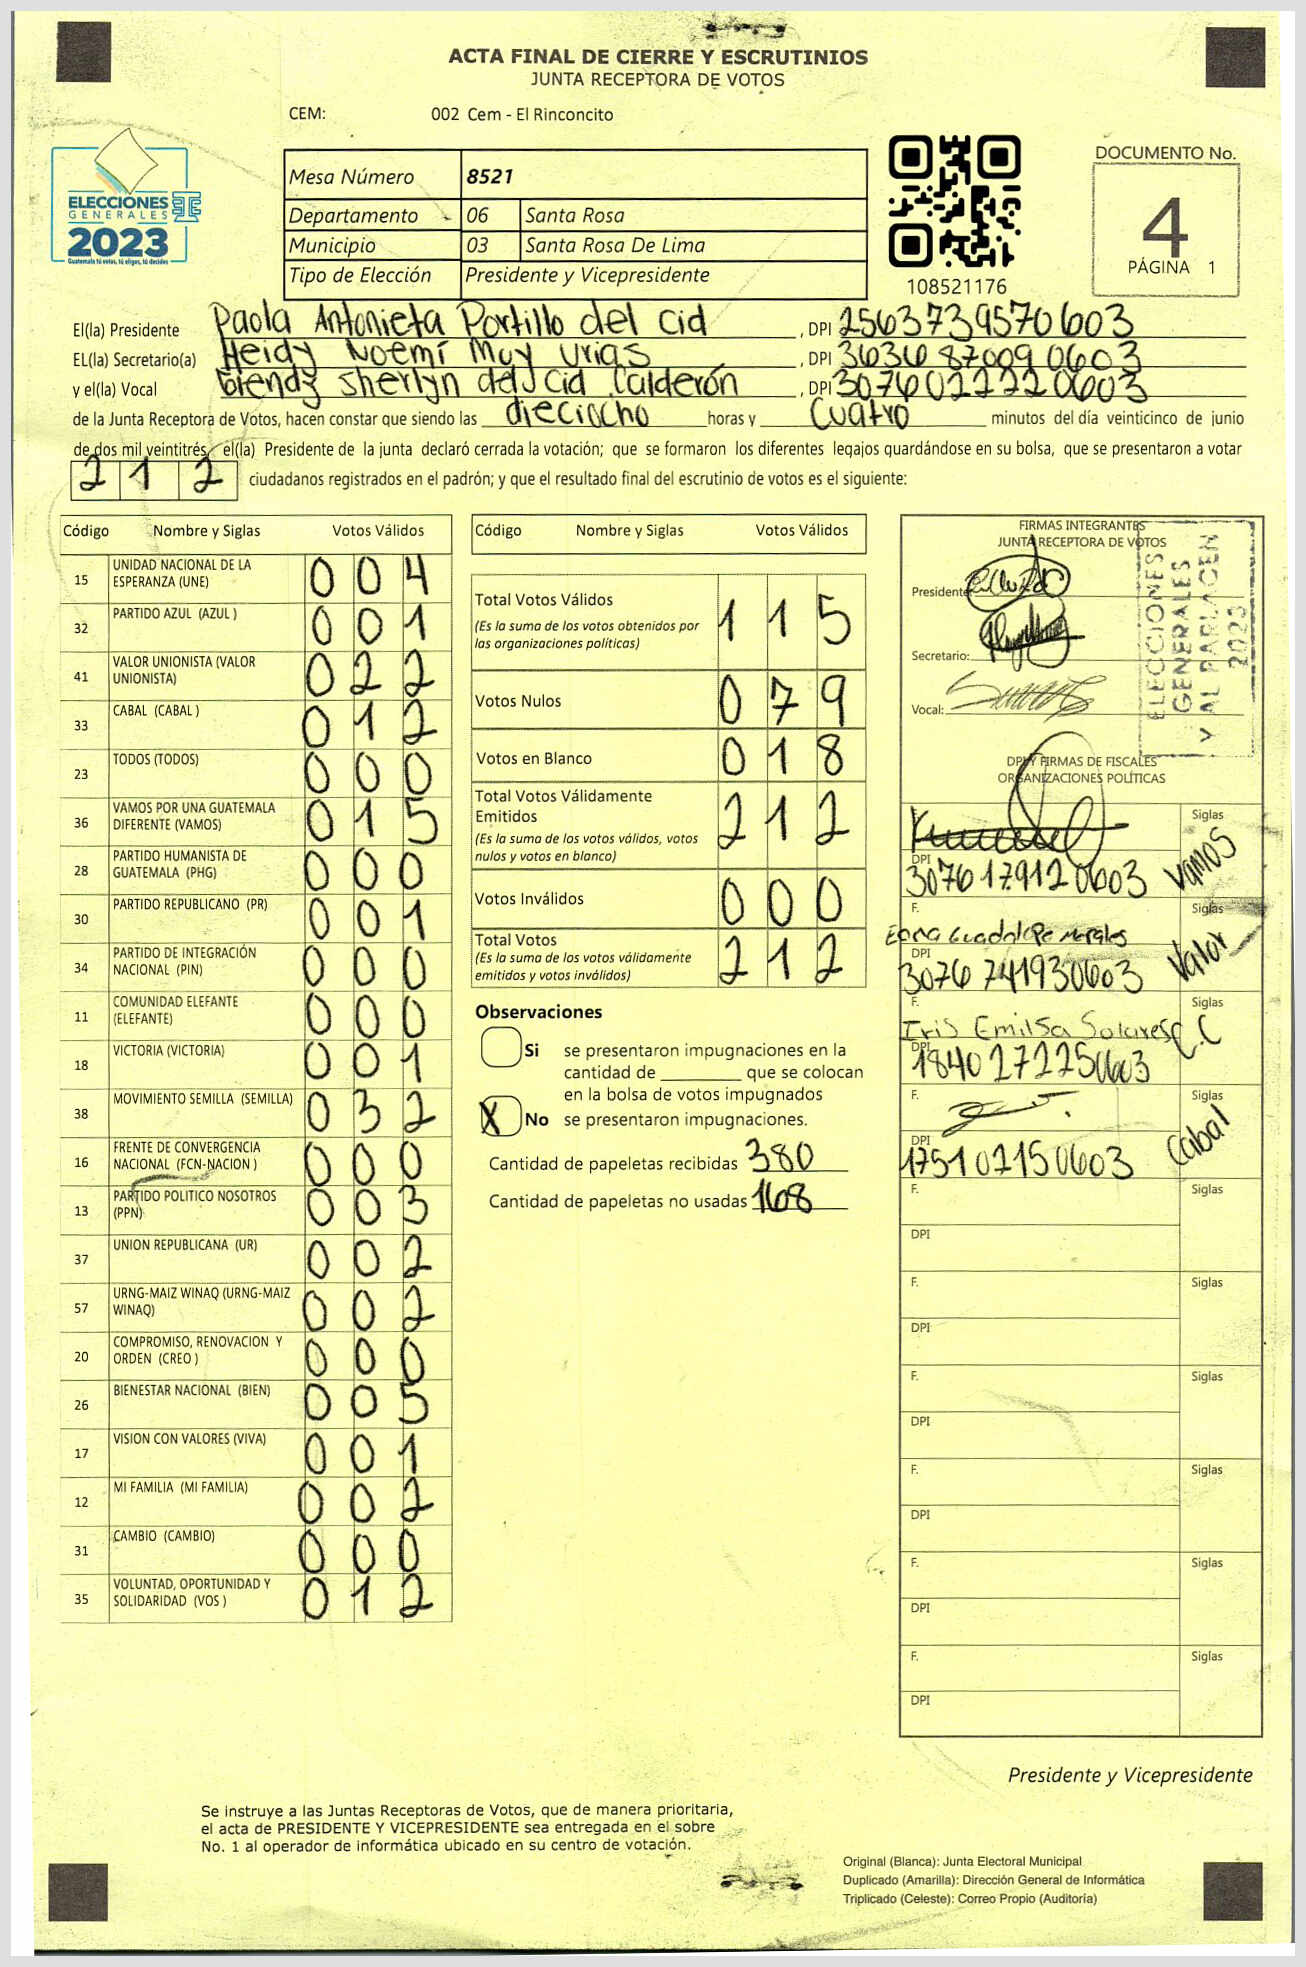 ACTA FINAL DE CIERRE Y ESCRUTINIOS
JUNTA RECEPTORA DE VOTOS
CEM: 002 Cem - El Rinconcito
ELECCIONES
GENERALES
2023
Guatemala tú votas, tú eliges, tú decides
Mesa Número 8521
Departamento 06 Santa Rosa
Municipio 03 Santa Rosa De Lima
Tipo de Elección Presidente y Vicepresidente
108521176
DOCUMENTO No.
4
PÁGINA 1
El(la) Presidente Paola Antonieta Portillo del Cid, DPI 2563739570603
EL(la) Secretario(a) Heidy Noemí Muy Urias, DPI 3636870090603
y el(la) Vocal Sherlyn del Cid Calderón, DPI 3076022220603
de la Junta Receptora de Votos, hacen constar que siendo las dieciocho horas y cuatro minutos del día veinticinco de junio
de dos mil veintitrés, el(la) Presidente de la junta declaró cerrada la votación; que se formaron los diferentes legajos guardándose en su bolsa, que se presentaron a votar
212 ciudadanos registrados en el padrón; y que el resultado final del escrutinio de votos es el siguiente:
Código Nombre y Siglas Votos Válidos
15 UNIDAD NACIONAL DE LA ESPERANZA (UNE) 004
32 PARTIDO AZUL (AZUL ) 001
41 VALOR UNIONISTA (VALOR UNIONISTA) 022
33 CABAL (CABAL ) 012
23 TODOS (TODOS) 000
36 VAMOS POR UNA GUATEMALA DIFERENTE (VAMOS) 015
28 PARTIDO HUMANISTA DE GUATEMALA (PHG) 000
30 PARTIDO REPUBLICANO (PR) 001
34 PARTIDO DE INTEGRACIÓN NACIONAL (PIN) 000
11 COMUNIDAD ELEFANTE (ELEFANTE) 000
18 VICTORIA (VICTORIA) 001
38 MOVIMIENTO SEMILLA (SEMILLA) 032
16 FRENTE DE CONVERGENCIA NACIONAL (FCN-NACION ) 000
13 PARTIDO POLITICO NOSOTROS (PPN) 003
37 UNION REPUBLICANA (UR) 002
57 URNG-MAIZ WINAQ (URNG-MAIZ WINAQ) 002
20 COMPROMISO, RENOVACION Y ORDEN (CREO ) 000
26 BIENESTAR NACIONAL (BIEN) 005
17 VISION CON VALORES (VIVA) 001
12 MI FAMILIA (MI FAMILIA) 002
31 CAMBIO (CAMBIO) 000
35 VOLUNTAD, OPORTUNIDAD Y SOLIDARIDAD (VOS ) 012
Código Nombre y Siglas Votos Válidos
Total Votos Válidos 115
(Es la suma de los votos obtenidos por las organizaciones políticas)
Votos Nulos 079
Votos en Blanco 018
Total Votos Válidamente Emitidos 212
(Es la suma de los votos válidos, votos nulos y votos en blanco)
Votos Inválidos 000
Total Votos 212
(Es la suma de los votos válidamente emitidos y votos inválidos)
Observaciones
Si se presentaron impugnaciones en la
cantidad de ________ que se colocan
en la bolsa de votos impugnados
X No se presentaron impugnaciones.
Cantidad de papeletas recibidas 380
Cantidad de papeletas no usadas 168
FIRMAS INTEGRANTES
JUNTA RECEPTORA DE VOTOS
Presidente:
Secretario:
Vocal:
ELECCIONES
GENERALES
Y AL PARLACEN
2023
DPI Y FIRMAS DE FISCALES
ORGANIZACIONES POLÍTICAS
Siglas
DPI
3076179120603 Vamos
F. Siglas
Guadalupe Morales
DPI
3076741930603 Valor
F. Siglas
Iris Emilsa Solares C.C
DPI
1840272250603
F. Siglas
DPI
175102150603 Cabal
F. Siglas
DPI
F. Siglas
DPI
F. Siglas
DPI
F. Siglas
DPI
F. Siglas
DPI
F. Siglas
DPI
Presidente y Vicepresidente
Se instruye a las Juntas Receptoras de Votos, que de manera prioritaria,
el acta de PRESIDENTE Y VICEPRESIDENTE sea entregada en el sobre
No. 1 al operador de informática ubicado en su centro de votación.
Original (Blanca): Junta Electoral Municipal
Duplicado (Amarilla): Dirección General de Informática
Triplicado (Celeste): Correo Propio (Auditoría)